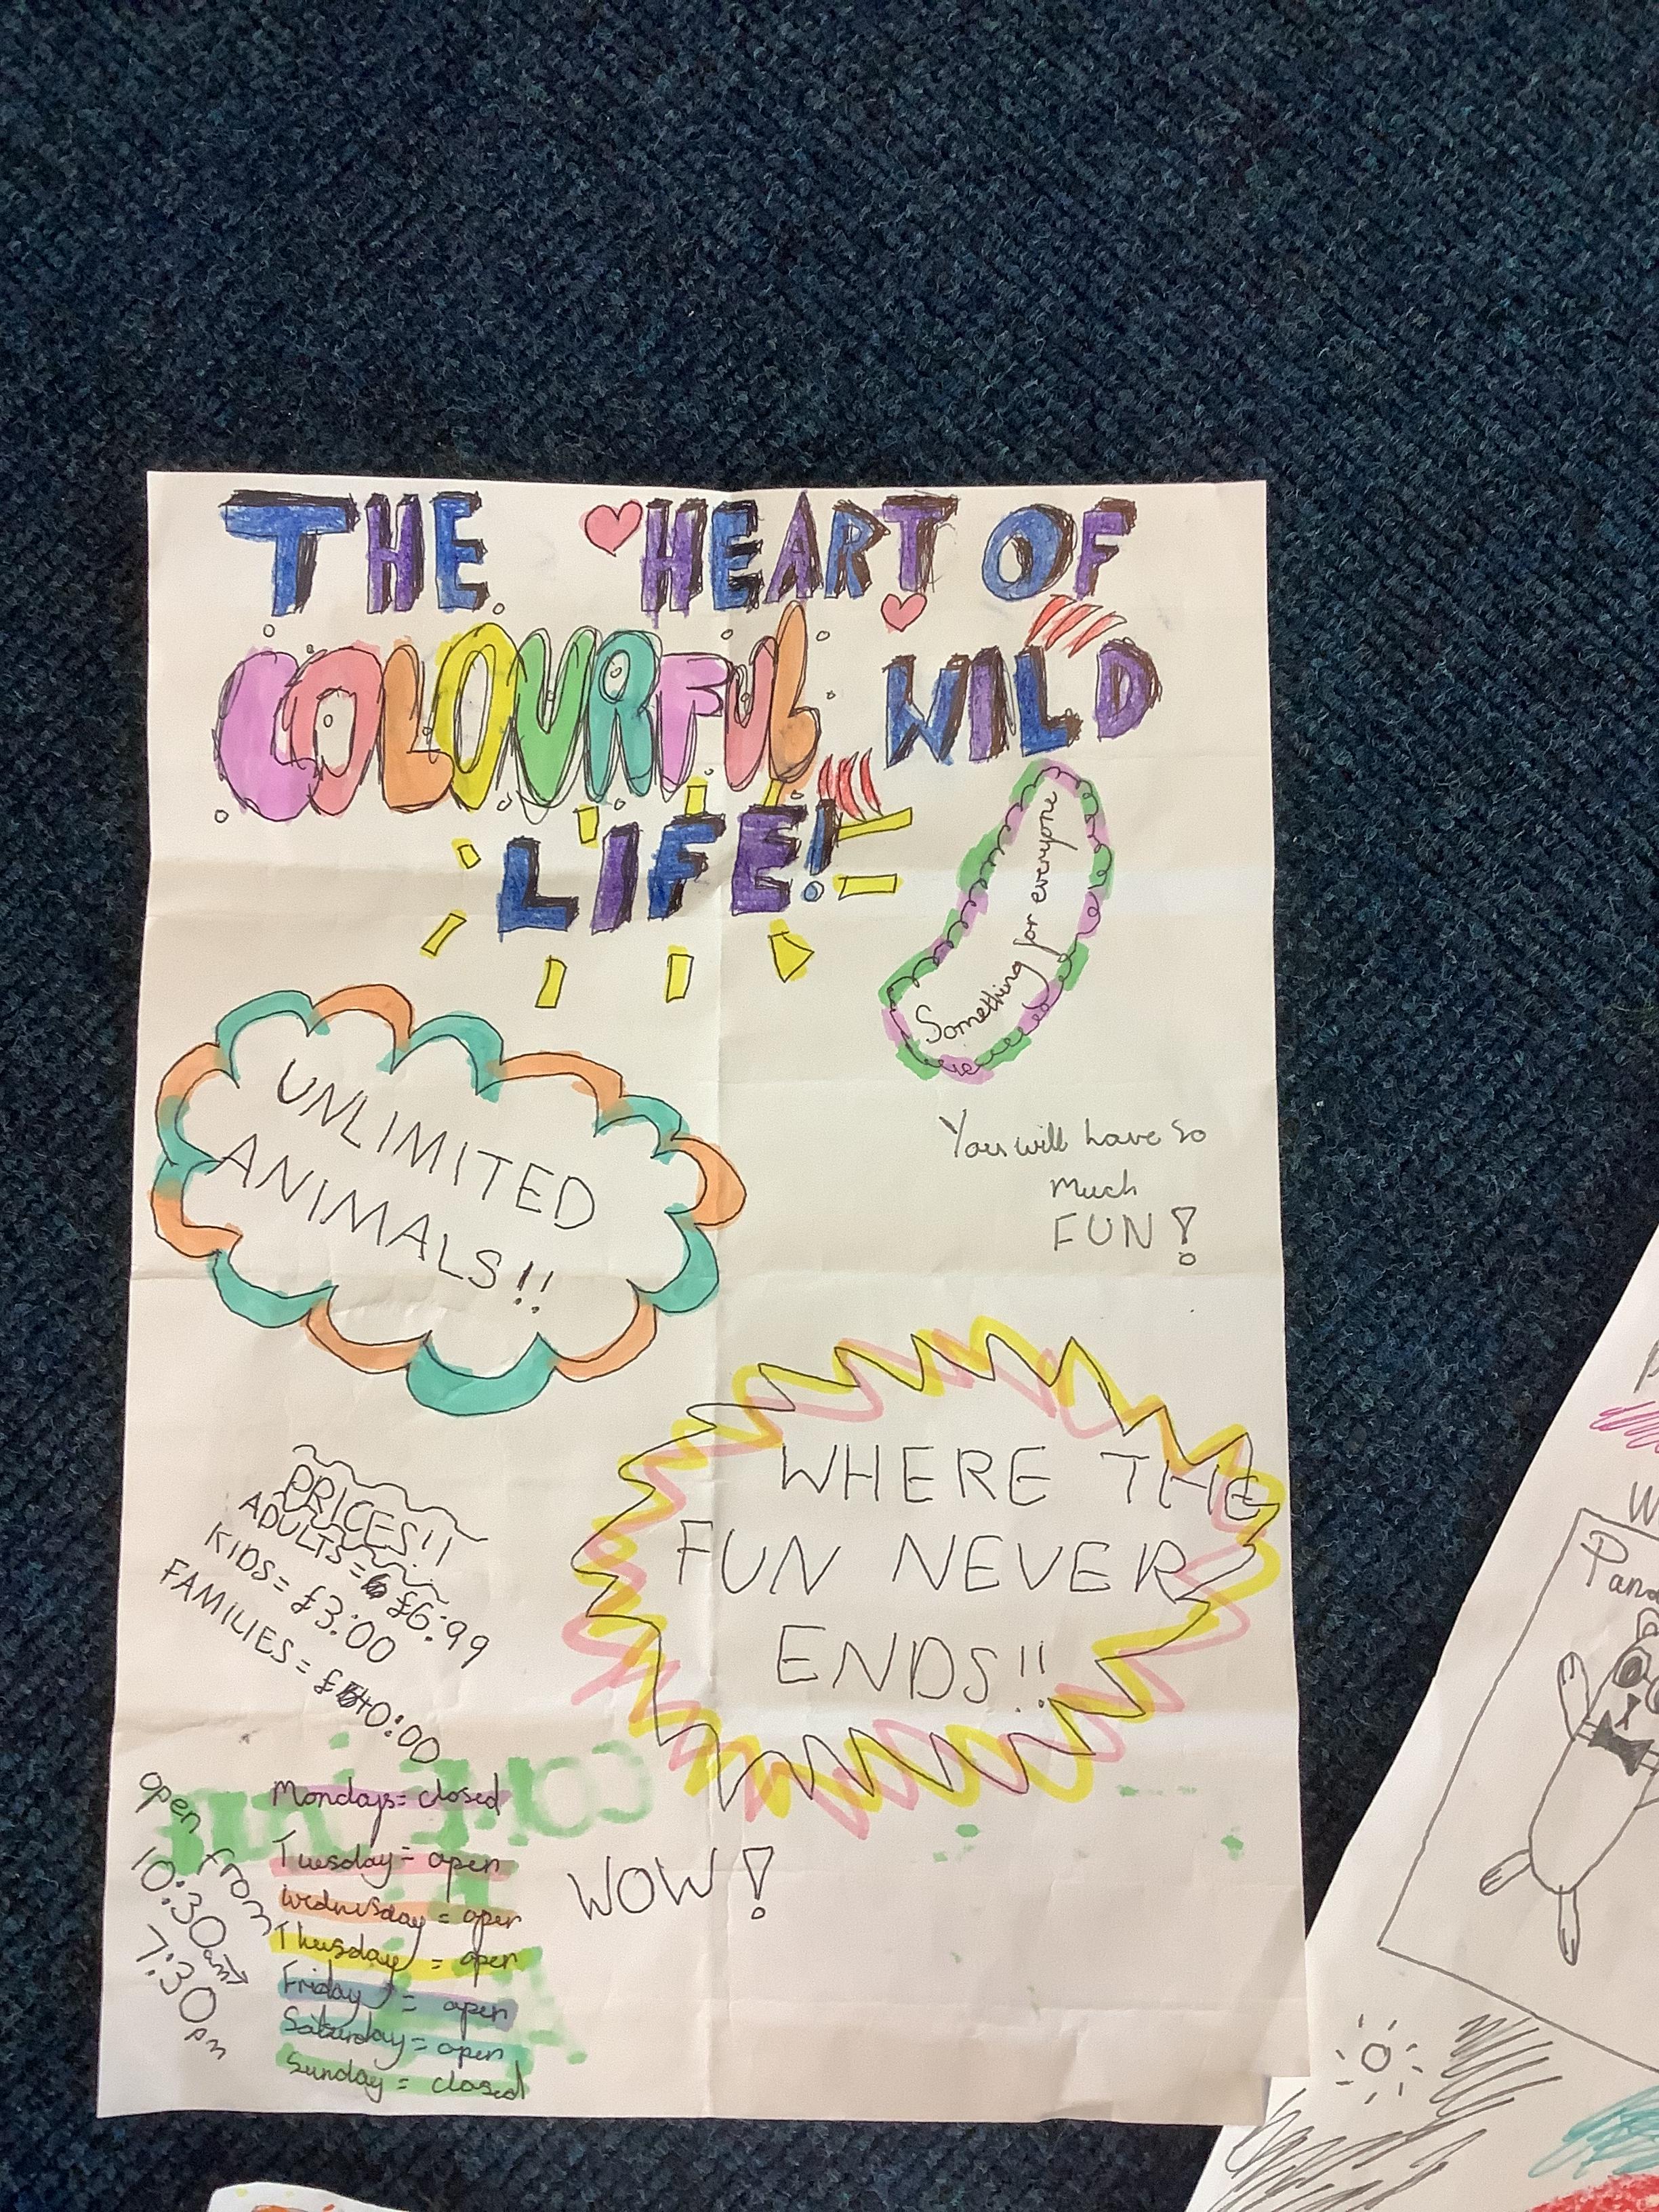 THE HEART OF
COLOURFUL WILD
LIFE!
Something for everyone
UNLIMITED
ANIMALS!!
You will have so
much
FUN!
WHERE THE
FUN NEVER
ENDS!!
PRICES!!
ADULTS = £6.99
KIDS = £3:00
FAMILIES = £10:00
open from
10:30am →
7:30pm
Mondays = closed
Tuesday = open
Wednesday = open
Thusday = open
Friday = open
Saturday = open
Sunday = closed
WOW!